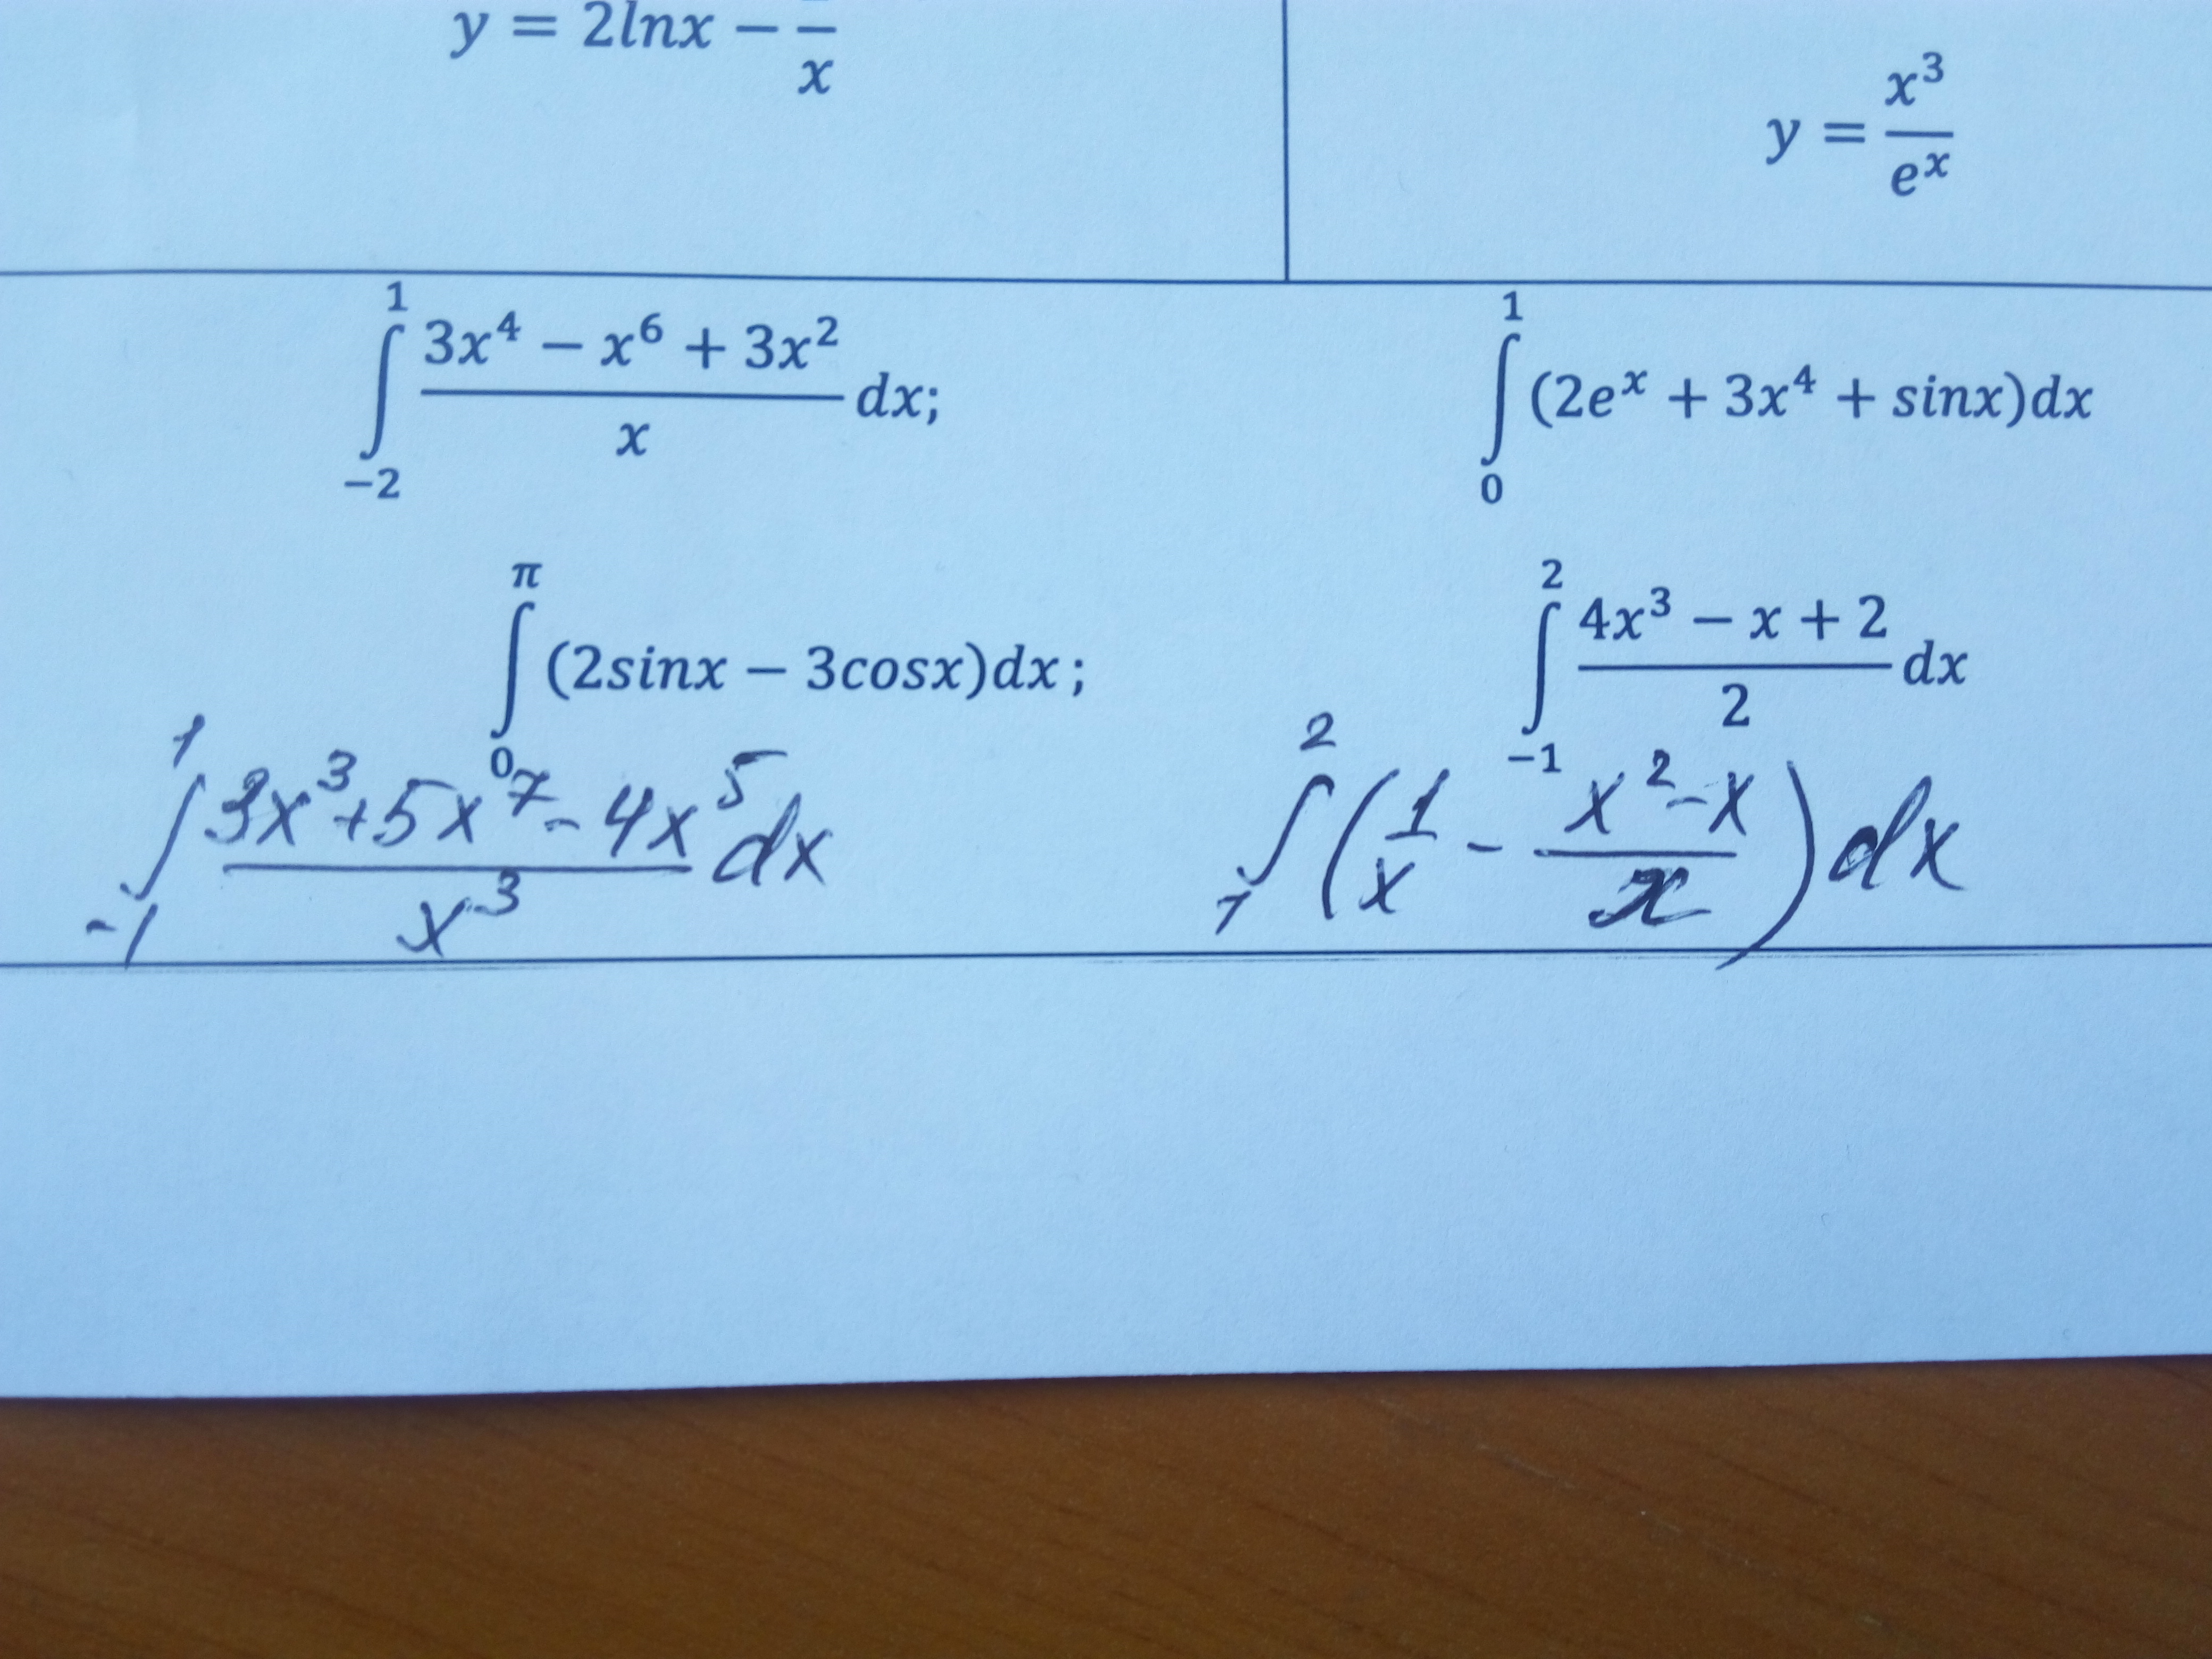 y = 2lnx − —/x
y = x³/eˣ
∫₋₂¹ (3x⁴ − x⁶ + 3x²)/x dx;
∫₀¹ (2eˣ + 3x⁴ + sinx)dx
∫₀^π (2sinx − 3cosx)dx;
∫₋₁² (4x³ − x + 2)/2 dx
∫₋₁¹ (3x³ + 5x⁷ − 4x⁵)/x³ dx
∫₁² (1/x − (x² − x)/x) dx